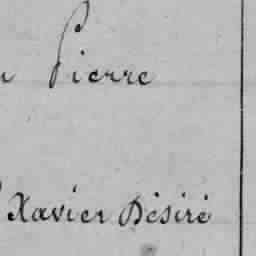 Pierre
Xavier Désiré